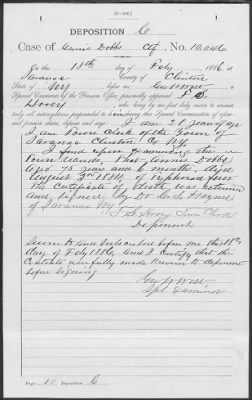 (3-446.)
DEPOSITION C
Case of Annis Dobbs Ctf, No. 10,040
On this 18th day of Feby, 1886, at
Saranac County of Clinton
State of NY, before me, Geo W West, a
Special Examiner of the Pension Office, personally appeared F. S.
Hovey, who being by me first duly sworn to answer
truly all interrogatories propounded to him in this Special Examination of afore-
said pension claim, deposes and says: I am 28 years age
I am Town Clerk of the Town of
Saranac Clinton Co NY.
I find upon examining the
Town that Annis Dobbs
75 years and 6 months, died
August 3rd 1884, of
the certificate of death was
and signed by Dr. Haynes
of Saranac NY
F. S. Hovey Town Clerk
Deponent
Sworn to and Subscribed before me this 18th
day of Feby 1886, and I certify that the
Contents were fully made known to deponent
before Signing
Geo W West
Spl Examiner
Page 10 Deposition C